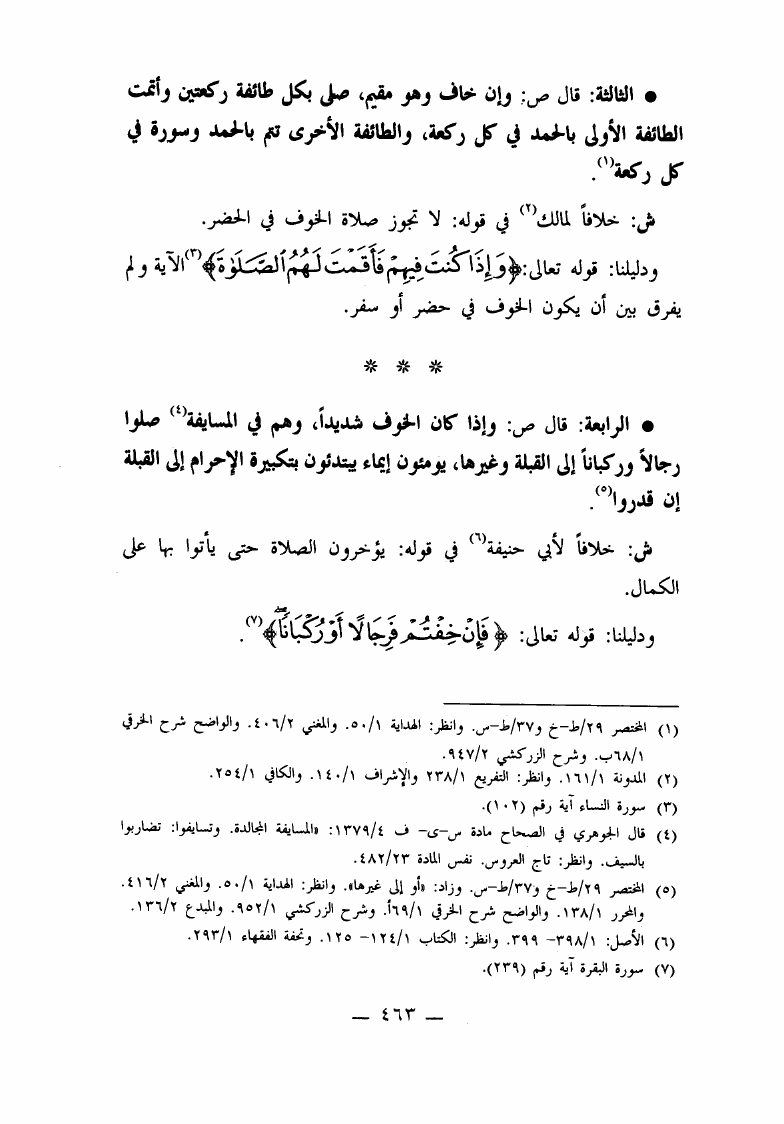 ● الثالثة: قال ص: وإن خاف وهو مقيم، صلى بكل طائفة ركعتين وأتمت
الطائفة الأولى بالحمد في كل ركعة، والطائفة الأخرى تتم بالحمد وسورة في
كل ركعة(١).
ش: خلافاً لمالك(٢) في قوله: لا تجوز صلاة الخوف في الحضر.
ودليلنا: قوله تعالى: ﴿وَإِذَا كُنتَ فِيهِمْ فَأَقَمْتَ لَهُمُ ٱلصَّلَوٰةَ﴾(٣) الآية و لم
يفرق بين أن يكون الخوف في حضر أو سفر.
* * *
● الرابعة: قال ص: وإذا كان الخوف شديداً، وهم في المسايفة(٤) صلوا
رجالاً وركباناً إلى القبلة وغيرها، يومئون إيماء يبتدئون بتكبيرة الإحرام إلى القبلة
إن قدروا(٥).
ش: خلافاً لأبي حنيفة(٦) في قوله: يؤخرون الصلاة حتى يأتوا بها على
الكمال.
ودليلنا: قوله تعالى: ﴿فَإِنْ خِفْتُمْ فَرِجَالًا أَوْ رُكْبَانًاۖ﴾(٧).
(١) المختصر ٢٩/ط–خ و٣٧/ط–س. وانظر: الهداية ٥٠/١. والمغني ٤٠٦/٢. والواضح شرح الخرقي
٦٨/١ب. وشرح الزركشي ٩٤٧/٢.
(٢) المدونة ١٦١/١. وانظر: التفريع ٢٣٨/١ والإشراف ١٤٠/١. والكافي ٢٥٤/١.
(٣) سورة النساء آية رقم (١٠٢).
(٤) قال الجوهري في الصحاح مادة س–ى– ف ١٣٧٩/٤: «المسايفة المجالدة. وتسايفوا: تضاربوا
بالسيف. وانظر: تاج العروس. نفس المادة ٤٨٢/٢٣.
(٥) المختصر ٢٩/ط–خ و٣٧/ط–س. وزاد: «أو إلى غيرها». وانظر: الهداية ٥٠/١. والمغني ٤١٦/٢.
والمحرر ١٣٨/١. والواضح شرح الخرقي ٦٩/١أ. وشرح الزركشي ٩٥٢/١. والمبدع ١٣٦/٢.
(٦) الأصل: ٣٩٨/١– ٣٩٩. وانظر: الكتاب ١٢٤/١– ١٢٥. وتحفة الفقهاء ٢٩٣/١.
(٧) سورة البقرة آية رقم (٢٣٩).
— ٤٦٣ —